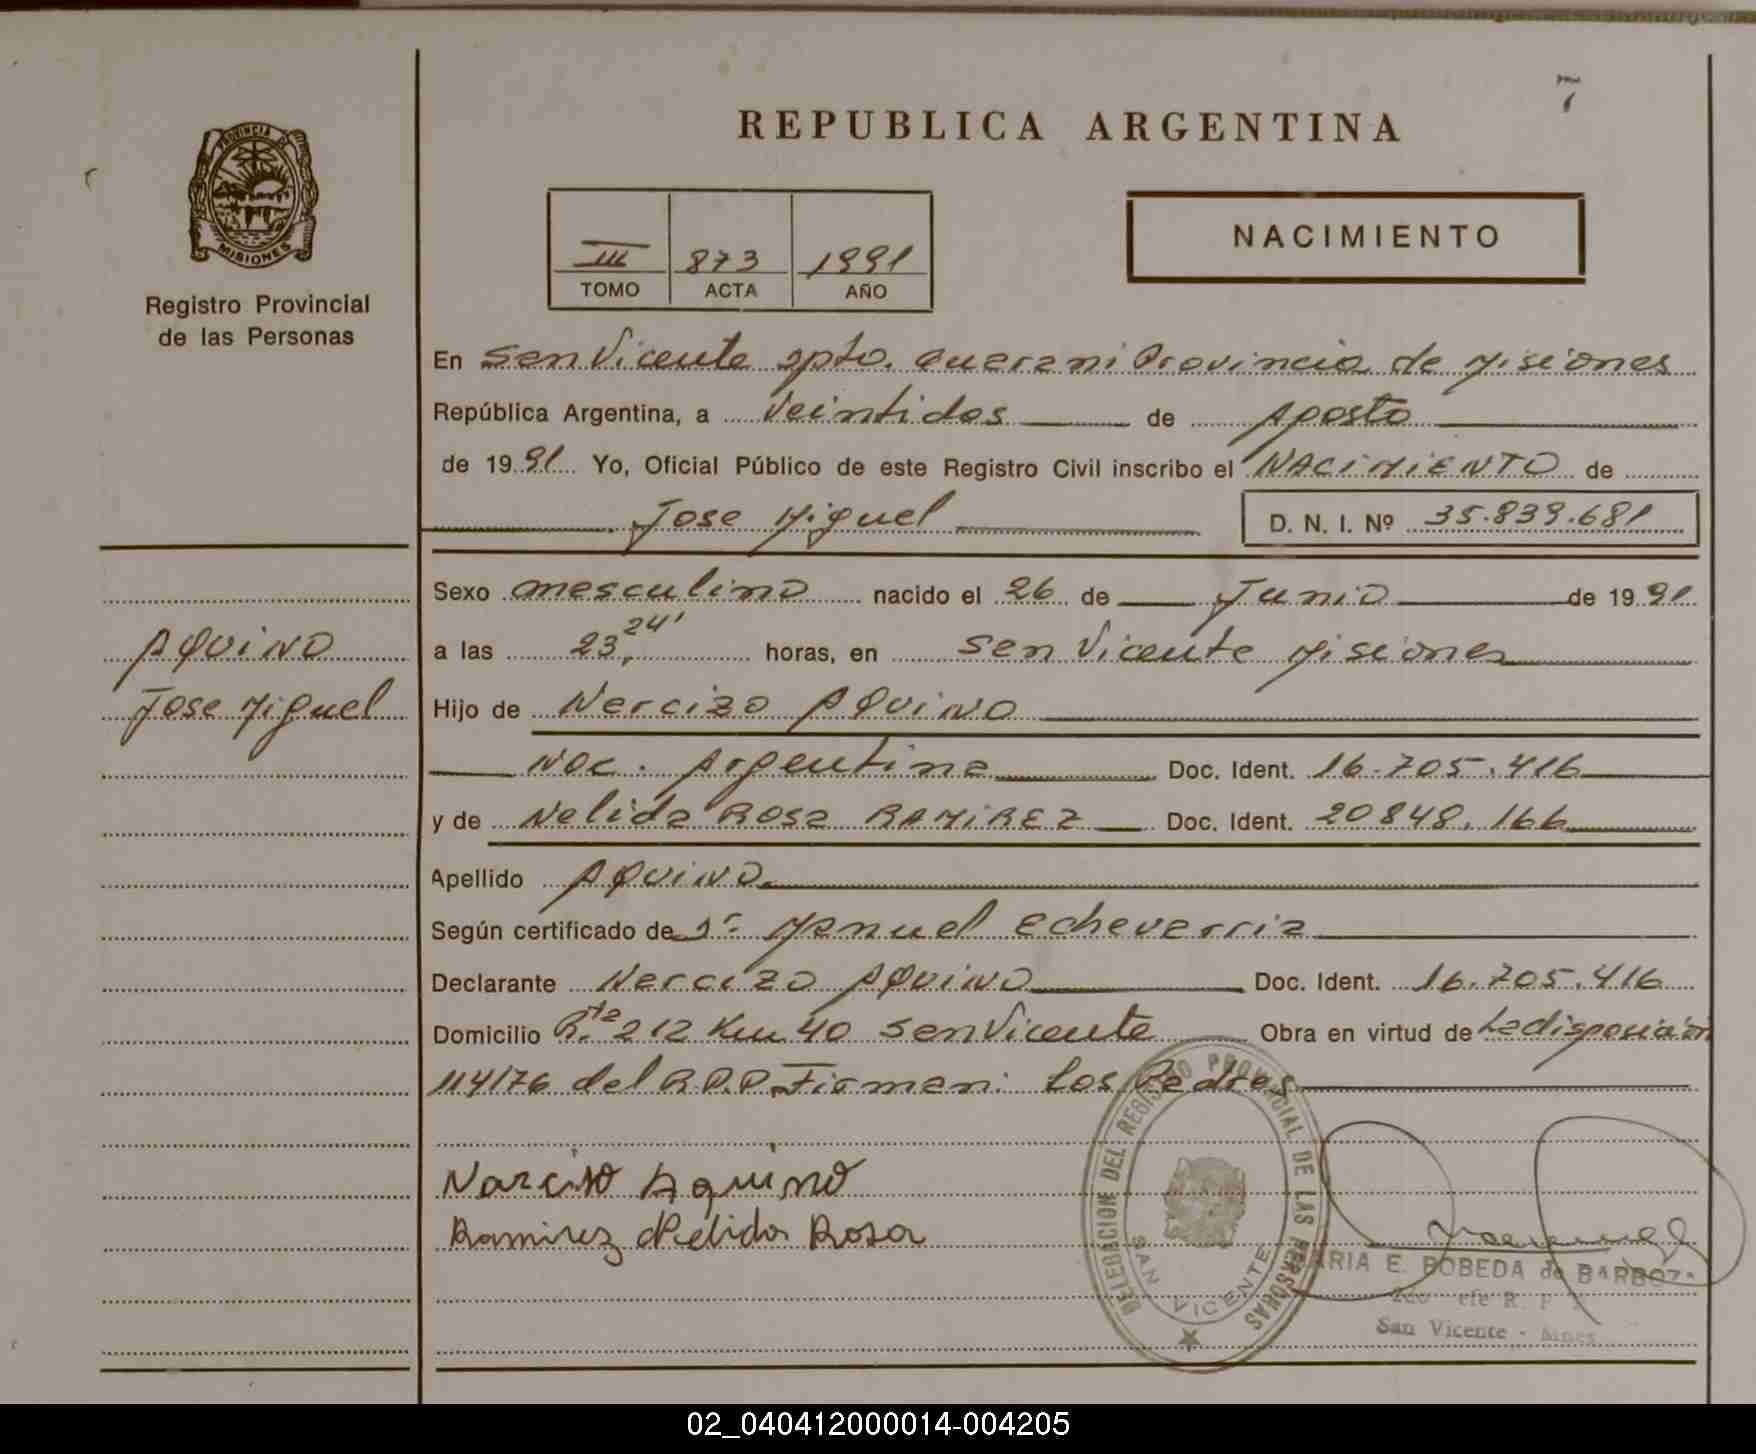 7
REPUBLICA ARGENTINA
PROVINCIA DE
MISIONES
Registro Provincial
de las Personas
III 873 1991
TOMO ACTA AÑO
NACIMIENTO
En San Vicente Dpto. Guarani Provincia de Misiones
República Argentina, a Veintidos de Agosto
de 1991 Yo, Oficial Público de este Registro Civil inscribo el NACIMIENTO de
Jose Miguel D. N. I. Nº 35.839.681
Sexo masculino nacido el 26 de Junio de 1991
a las 23,24' horas, en San Vicente Misiones
AQUINO
Jose Miguel
Hijo de Narcizo AQUINO
Nac. Argentina Doc. Ident. 16.705.416
y de Nelida Rosa RAMIREZ Doc. Ident. 20848.166
Apellido AQUINO
Según certificado de Dr. Manuel Echeverria
Declarante Narcizo AQUINO Doc. Ident. 16.705.416
Domicilio R.ta 212 Km 40 San Vicente Obra en virtud de La disposición
114/76 del R.P.P. Firman: Los Padres
Narciso Aquino
Ramirez Nelida Rosa
DELEGACION DEL REGISTRO PROVINCIAL DE LAS PERSONAS
SAN VICENTE
MARIA E. BOBEDA de BARBOZA
San Vicente - Mnes.
02_040412000014-004205